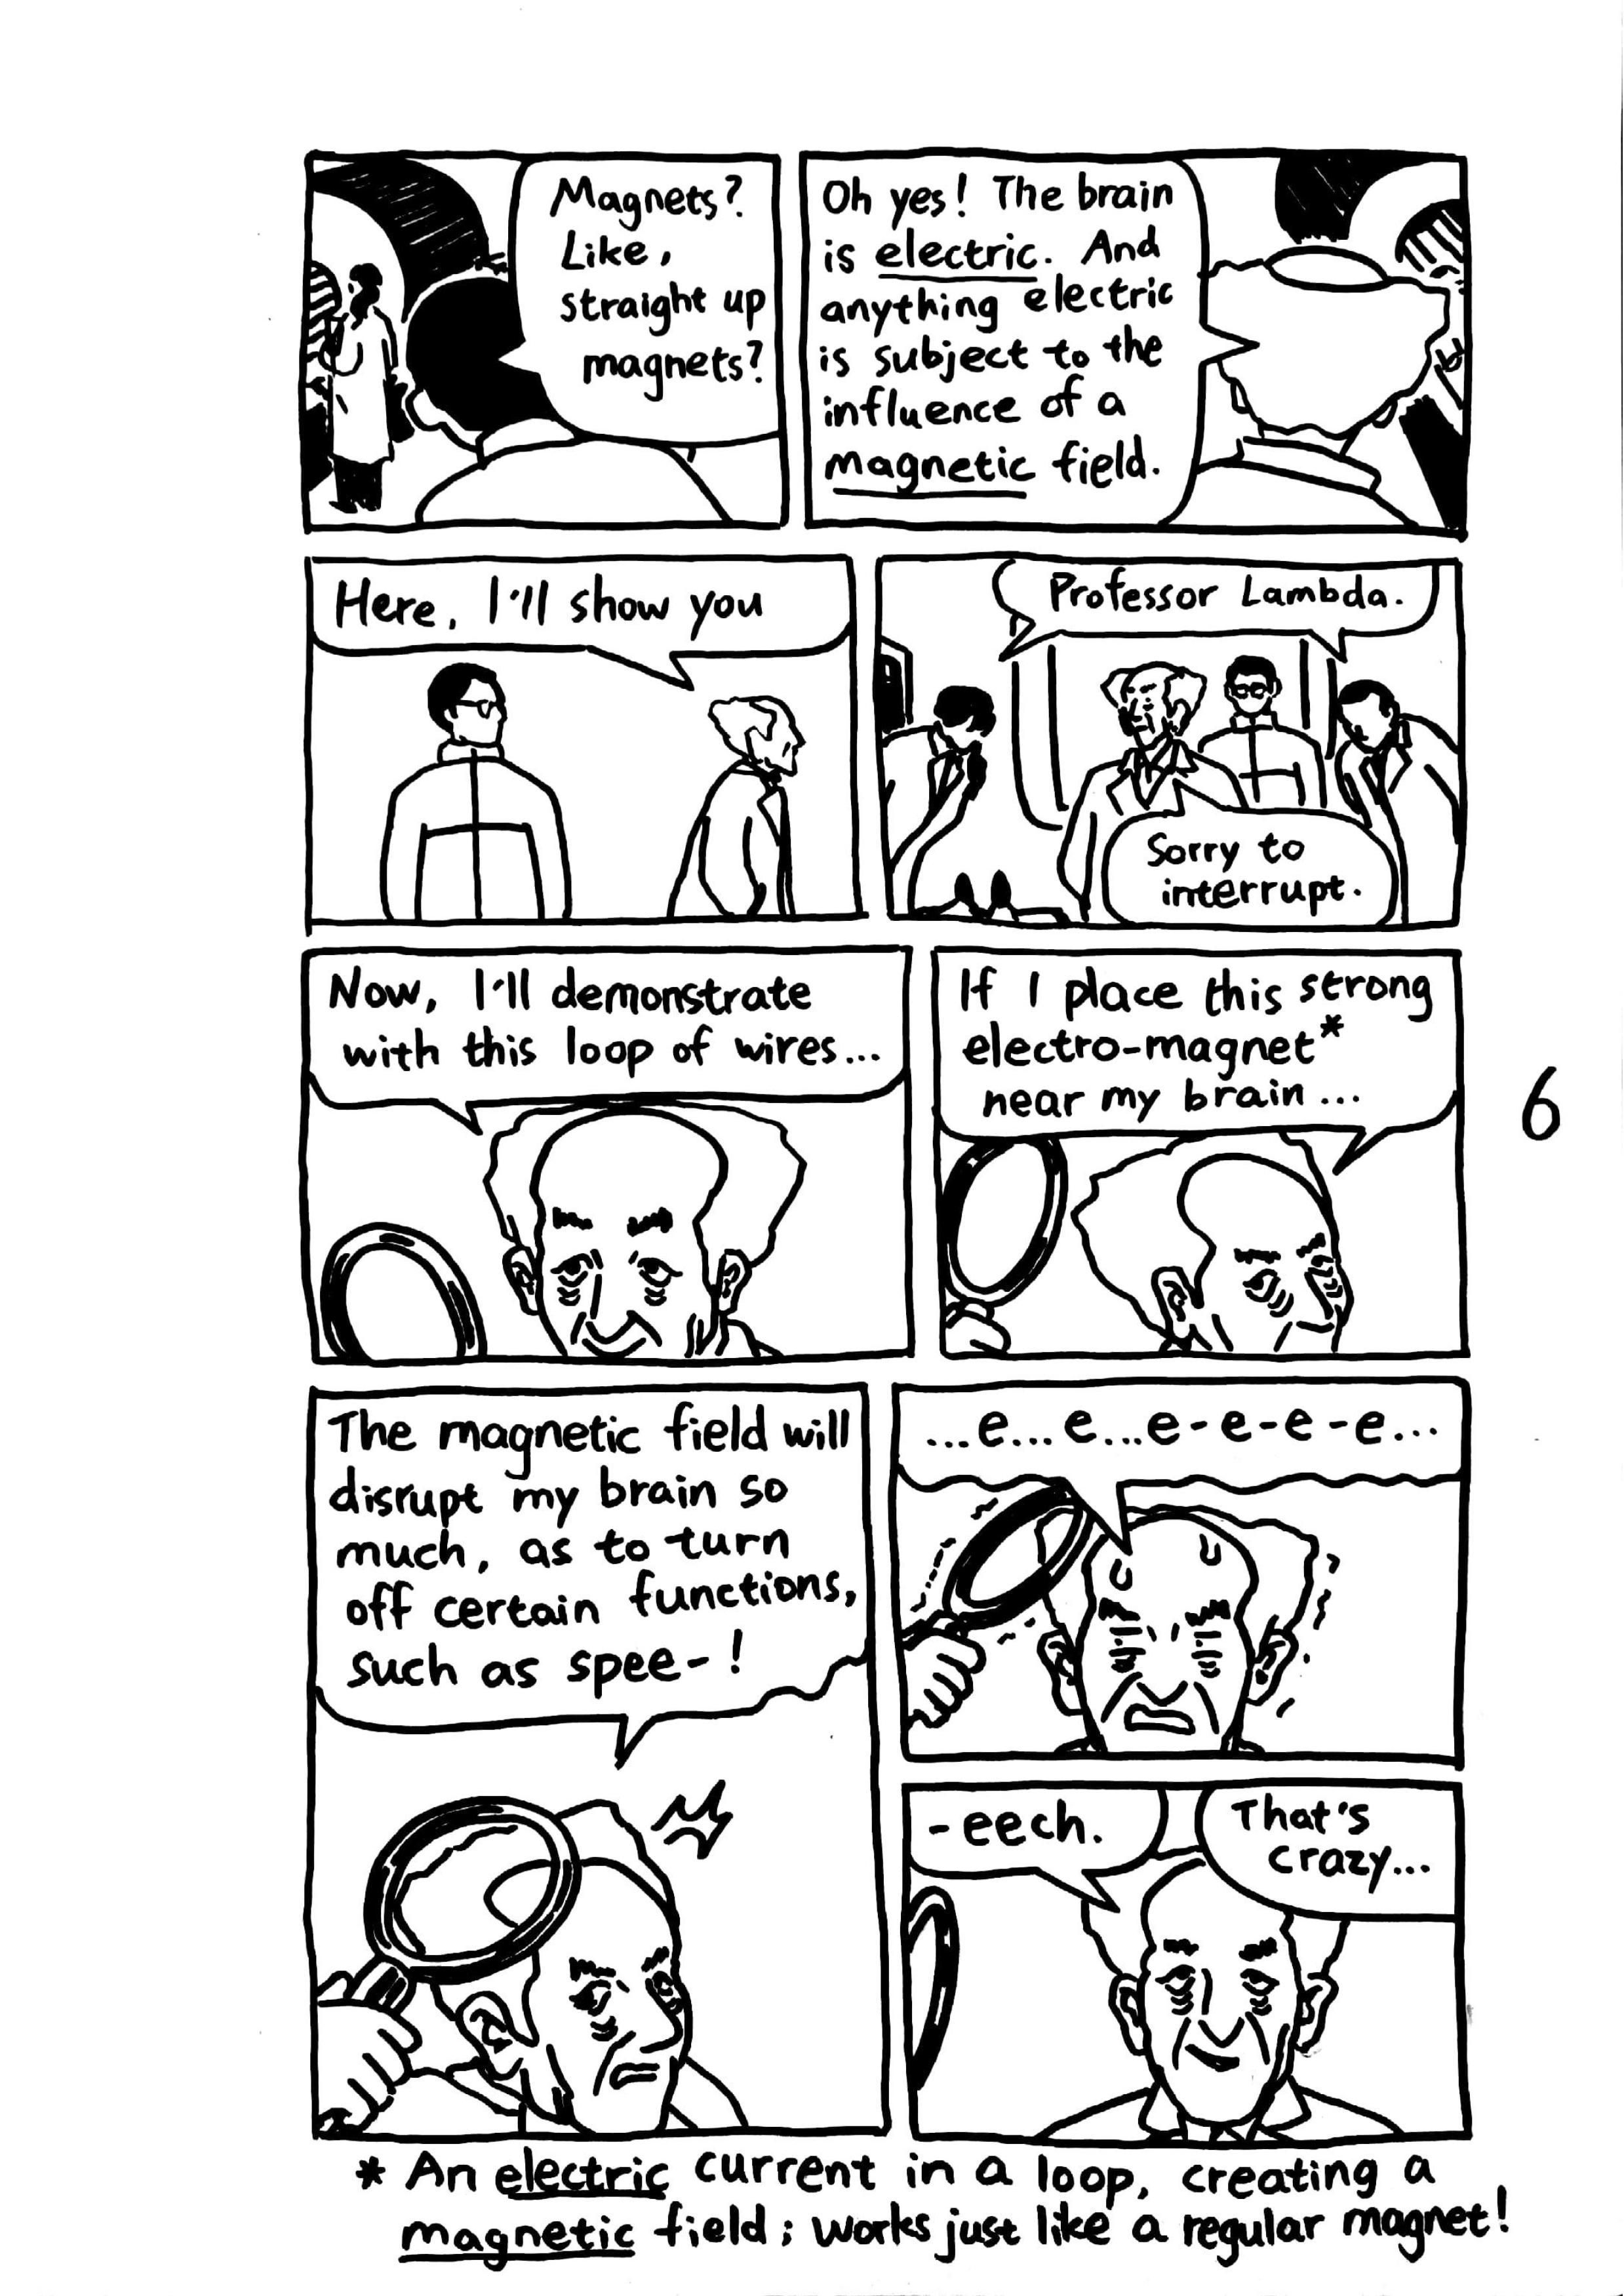 Magnets?
Like,
straight up
magnets?
Oh yes! The brain
is electric. And
anything electric
is subject to the
influence of a
magnetic field.
Here, I'll show you
Professor Lambda.
Sorry to
interrupt.
Now, I'll demonstrate
with this loop of wires...
If I place this strong
electro-magnet*
near my brain...
The magnetic field will
disrupt my brain so
much, as to turn
off certain functions,
such as spee-!
...e...e...e-e-e-e...
-eech.
That's
crazy...
* An electric current in a loop, creating a
magnetic field; works just like a regular magnet!
6